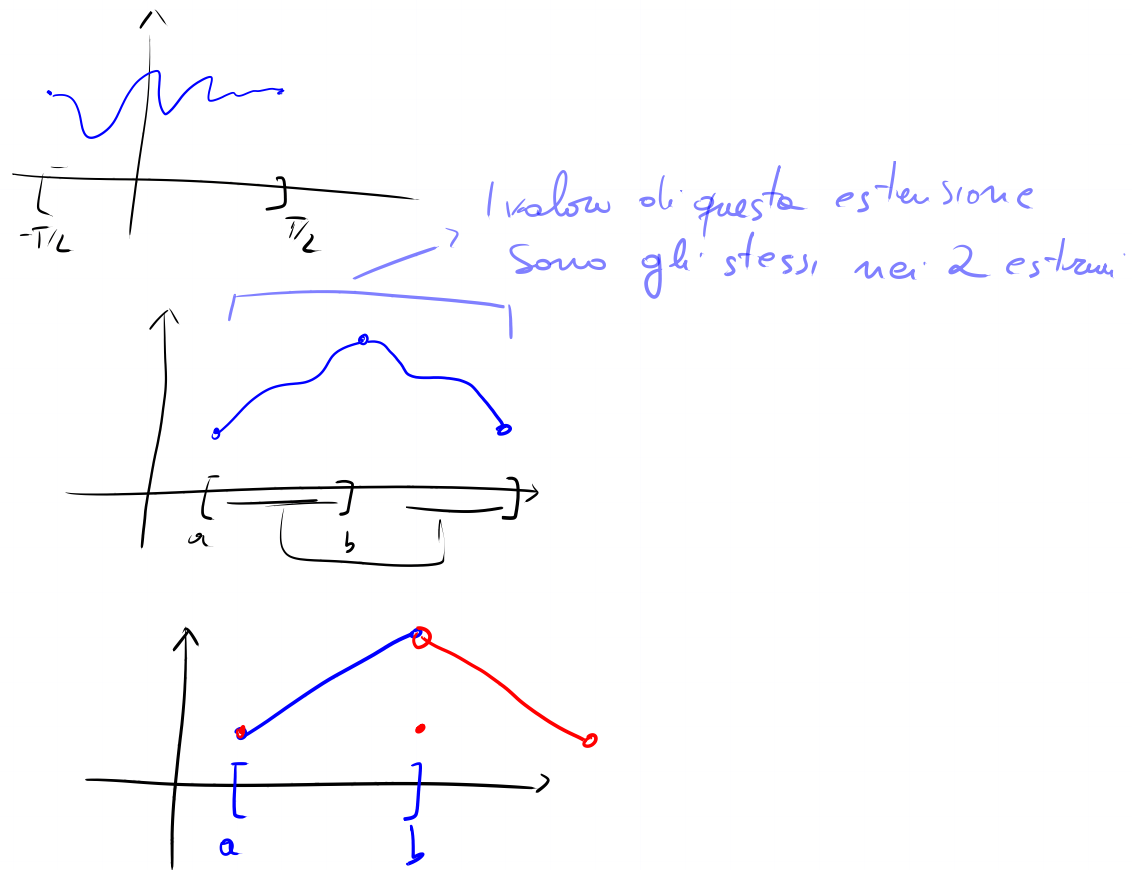 -π/2
π/2
I valori di questa estensione
sono gli stessi nei 2 estremi
a
b
a
b